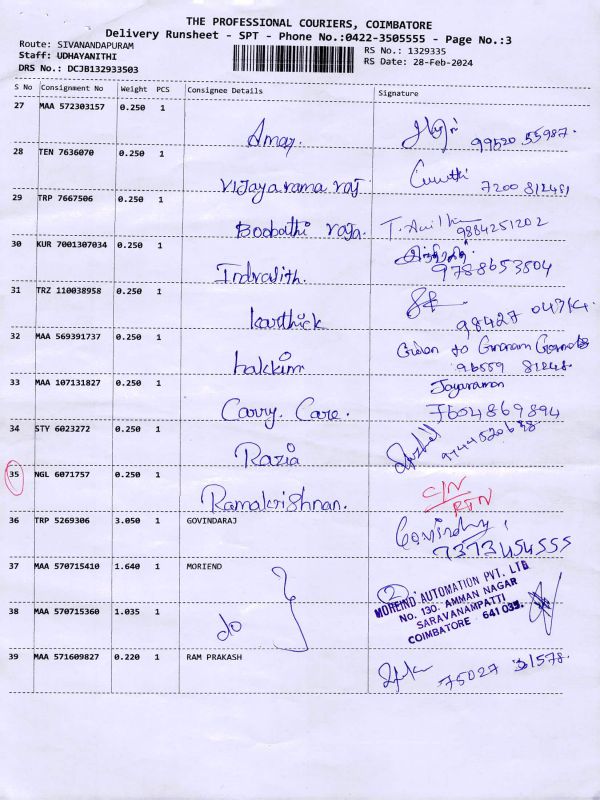 THE PROFESSIONAL COURIERS, COIMBATORE
Delivery Runsheet - SPT - Phone No.:0422-3505555 - Page No.:3
Route: SIVANANDAPURAM
Staff: UDHAYANITHI
DRS No.: DCJB132933503
RS No.: 1329335
RS Date: 28-Feb-2024
S No Consignment No Weight PCS Consignee Details Signature
27 MAA 572303157 0.250 1
Amar. 99520 55987.
28 TEN 7636070 0.250 1
Vijayarama raj 7200 812481
29 TRP 7667506 0.250 1
Boobathi raja. 9884251202
30 KUR 7001307034 0.250 1
Indrajith. 9788653804
31 TRZ 110038958 0.250 1
karthick 98427 04714.
32 MAA 569391737 0.250 1
hakkim Given to
96559 81248.
33 MAA 107131827 0.250 1 Jayaraman
Carry. Care. 7604869894
34 STY 6023272 0.250 1
Razia
35 NGL 6071757 0.250 1
Ramakrishnan. C/N
RTN
36 TRP 5269306 3.050 1 GOVINDARAJ
7373454555
37 MAA 570715410 1.640 1 MORIEND
2
38 MAA 570715360 1.035 1
do
MOREIND AUTOMATION PVT. LTD
No. 130, AMMAN NAGAR
SARAVANAMPATTI
COIMBATORE - 641 035.
39 MAA 571609827 0.220 1 RAM PRAKASH
75027 31578.